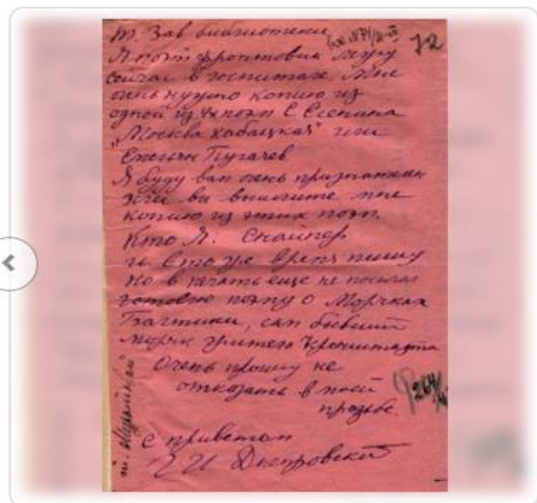 т. Зав библиотеки
72
Я поэт фронтовик лежу
сейчас в госпитале. Мне
очень нужно копию из
одной из поэм С Есенина
"Москва кабацкая" или
Пугачев
Я буду вам очень признателен
вы вышлите мне
копию из этих поэм.
Кто Я. Снайпер
и в то же время пишу
но в печать еще не посылал
готовлю поэму о Морячках
Балтики, сам бывший
моряк Кронштадта
Очень прошу не
отказать в моей
прозьбе.
с приветом
И Днепровский